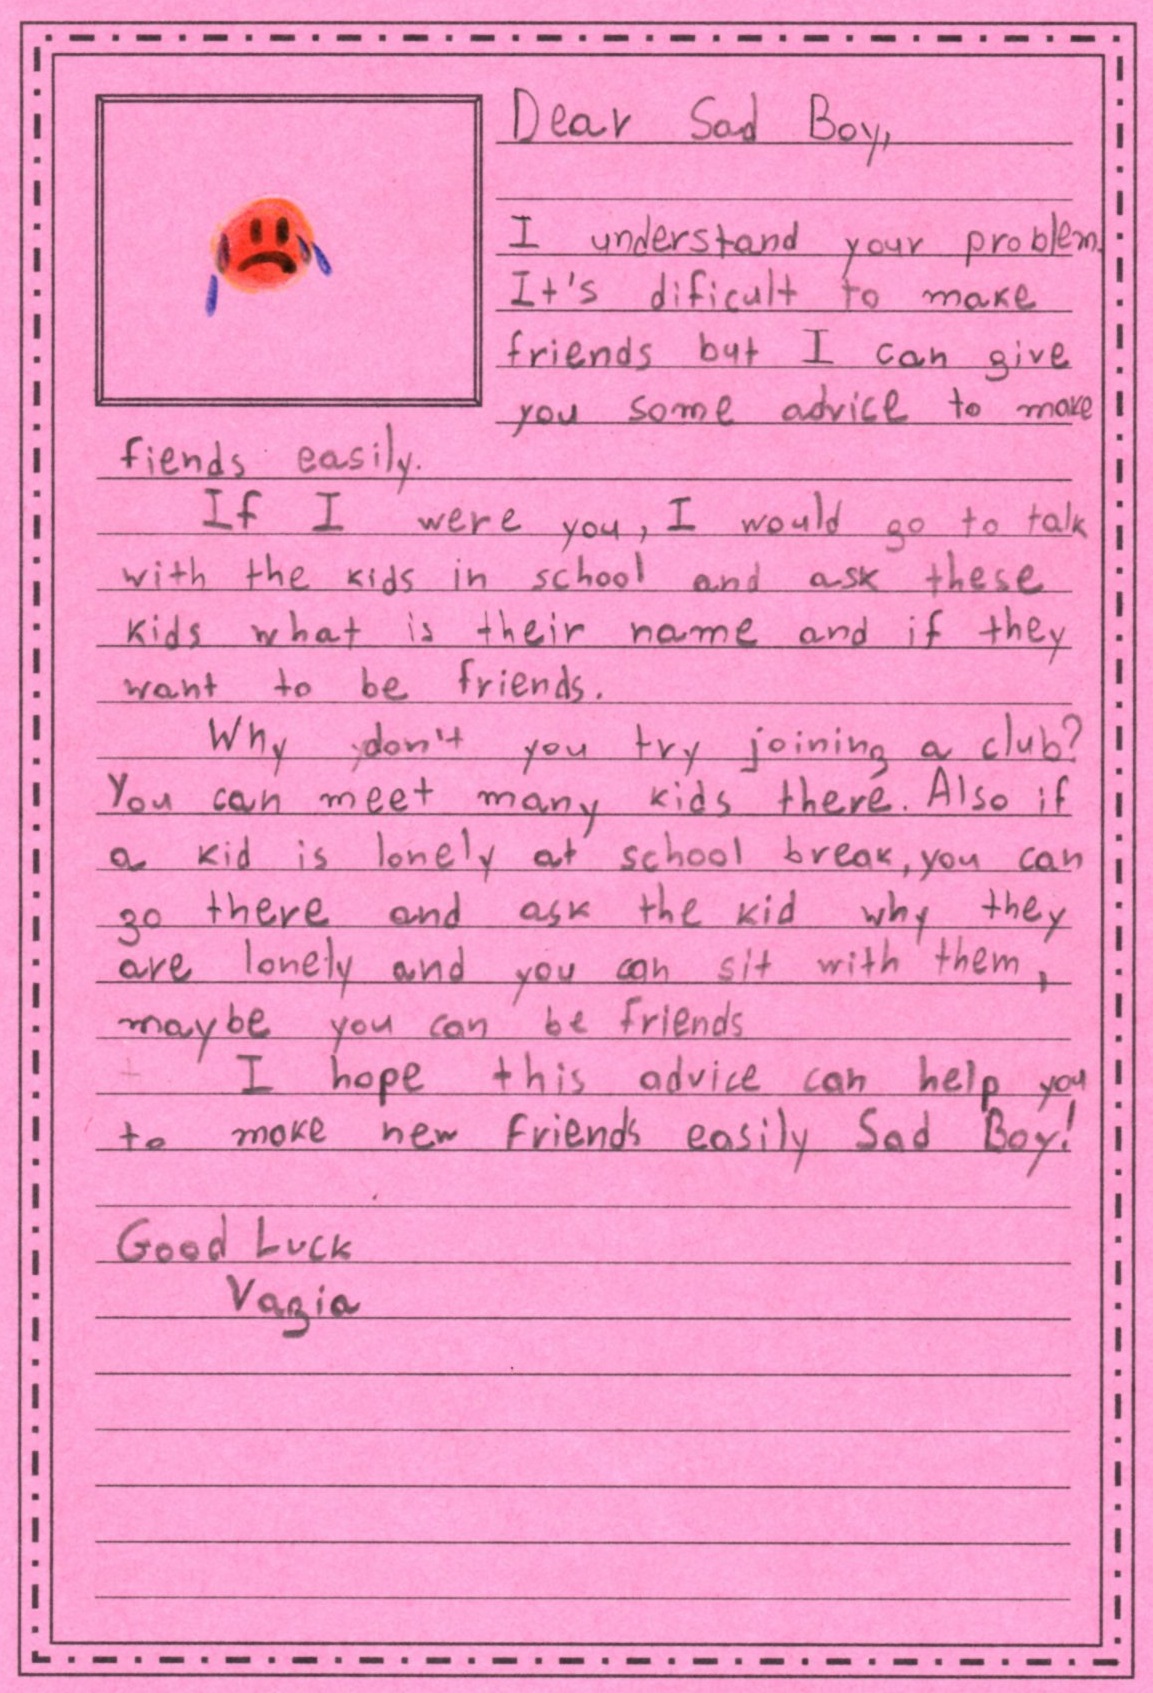 Dear Sad Boy,
I understand your problem.
It's dificult to make
friends but I can give
you some advice to make
fiends easily.
If I were you, I would go to talk
with the kids in school and ask these
kids what is their name and if they
want to be friends.
Why don't you try joining a club?
You can meet many kids there. Also if
a kid is lonely at school break, you can
go there and ask the kid why they
are lonely and you can sit with them,
maybe you can be friends
I hope this advice can help you
to make new friends easily Sad Boy!
Good Luck
Vagia